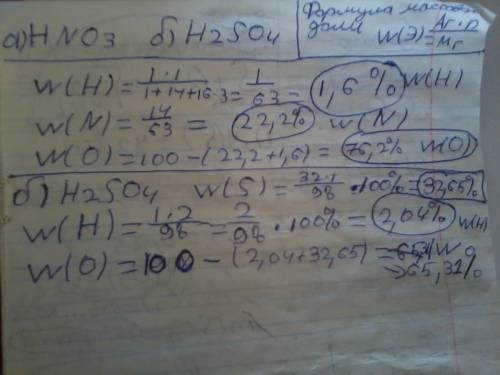 а) HNO3 б) H2SO4
Формула массовой доли w(Э)=Ar·n/Mr
w(H)=1·1/1+14+16·3=1/63=1,6% w(H)
w(N)=14/63=22,2% w(N)
w(O)=100-(22,2+1,6)=76,2% w(O)
б) H2SO4 w(S)=32·1/98·100%=32,65%
w(H)=1·2/98=2/98·100%=2,04% w(H)
w(O)=100-(2,04+32,65)=
→65,31%